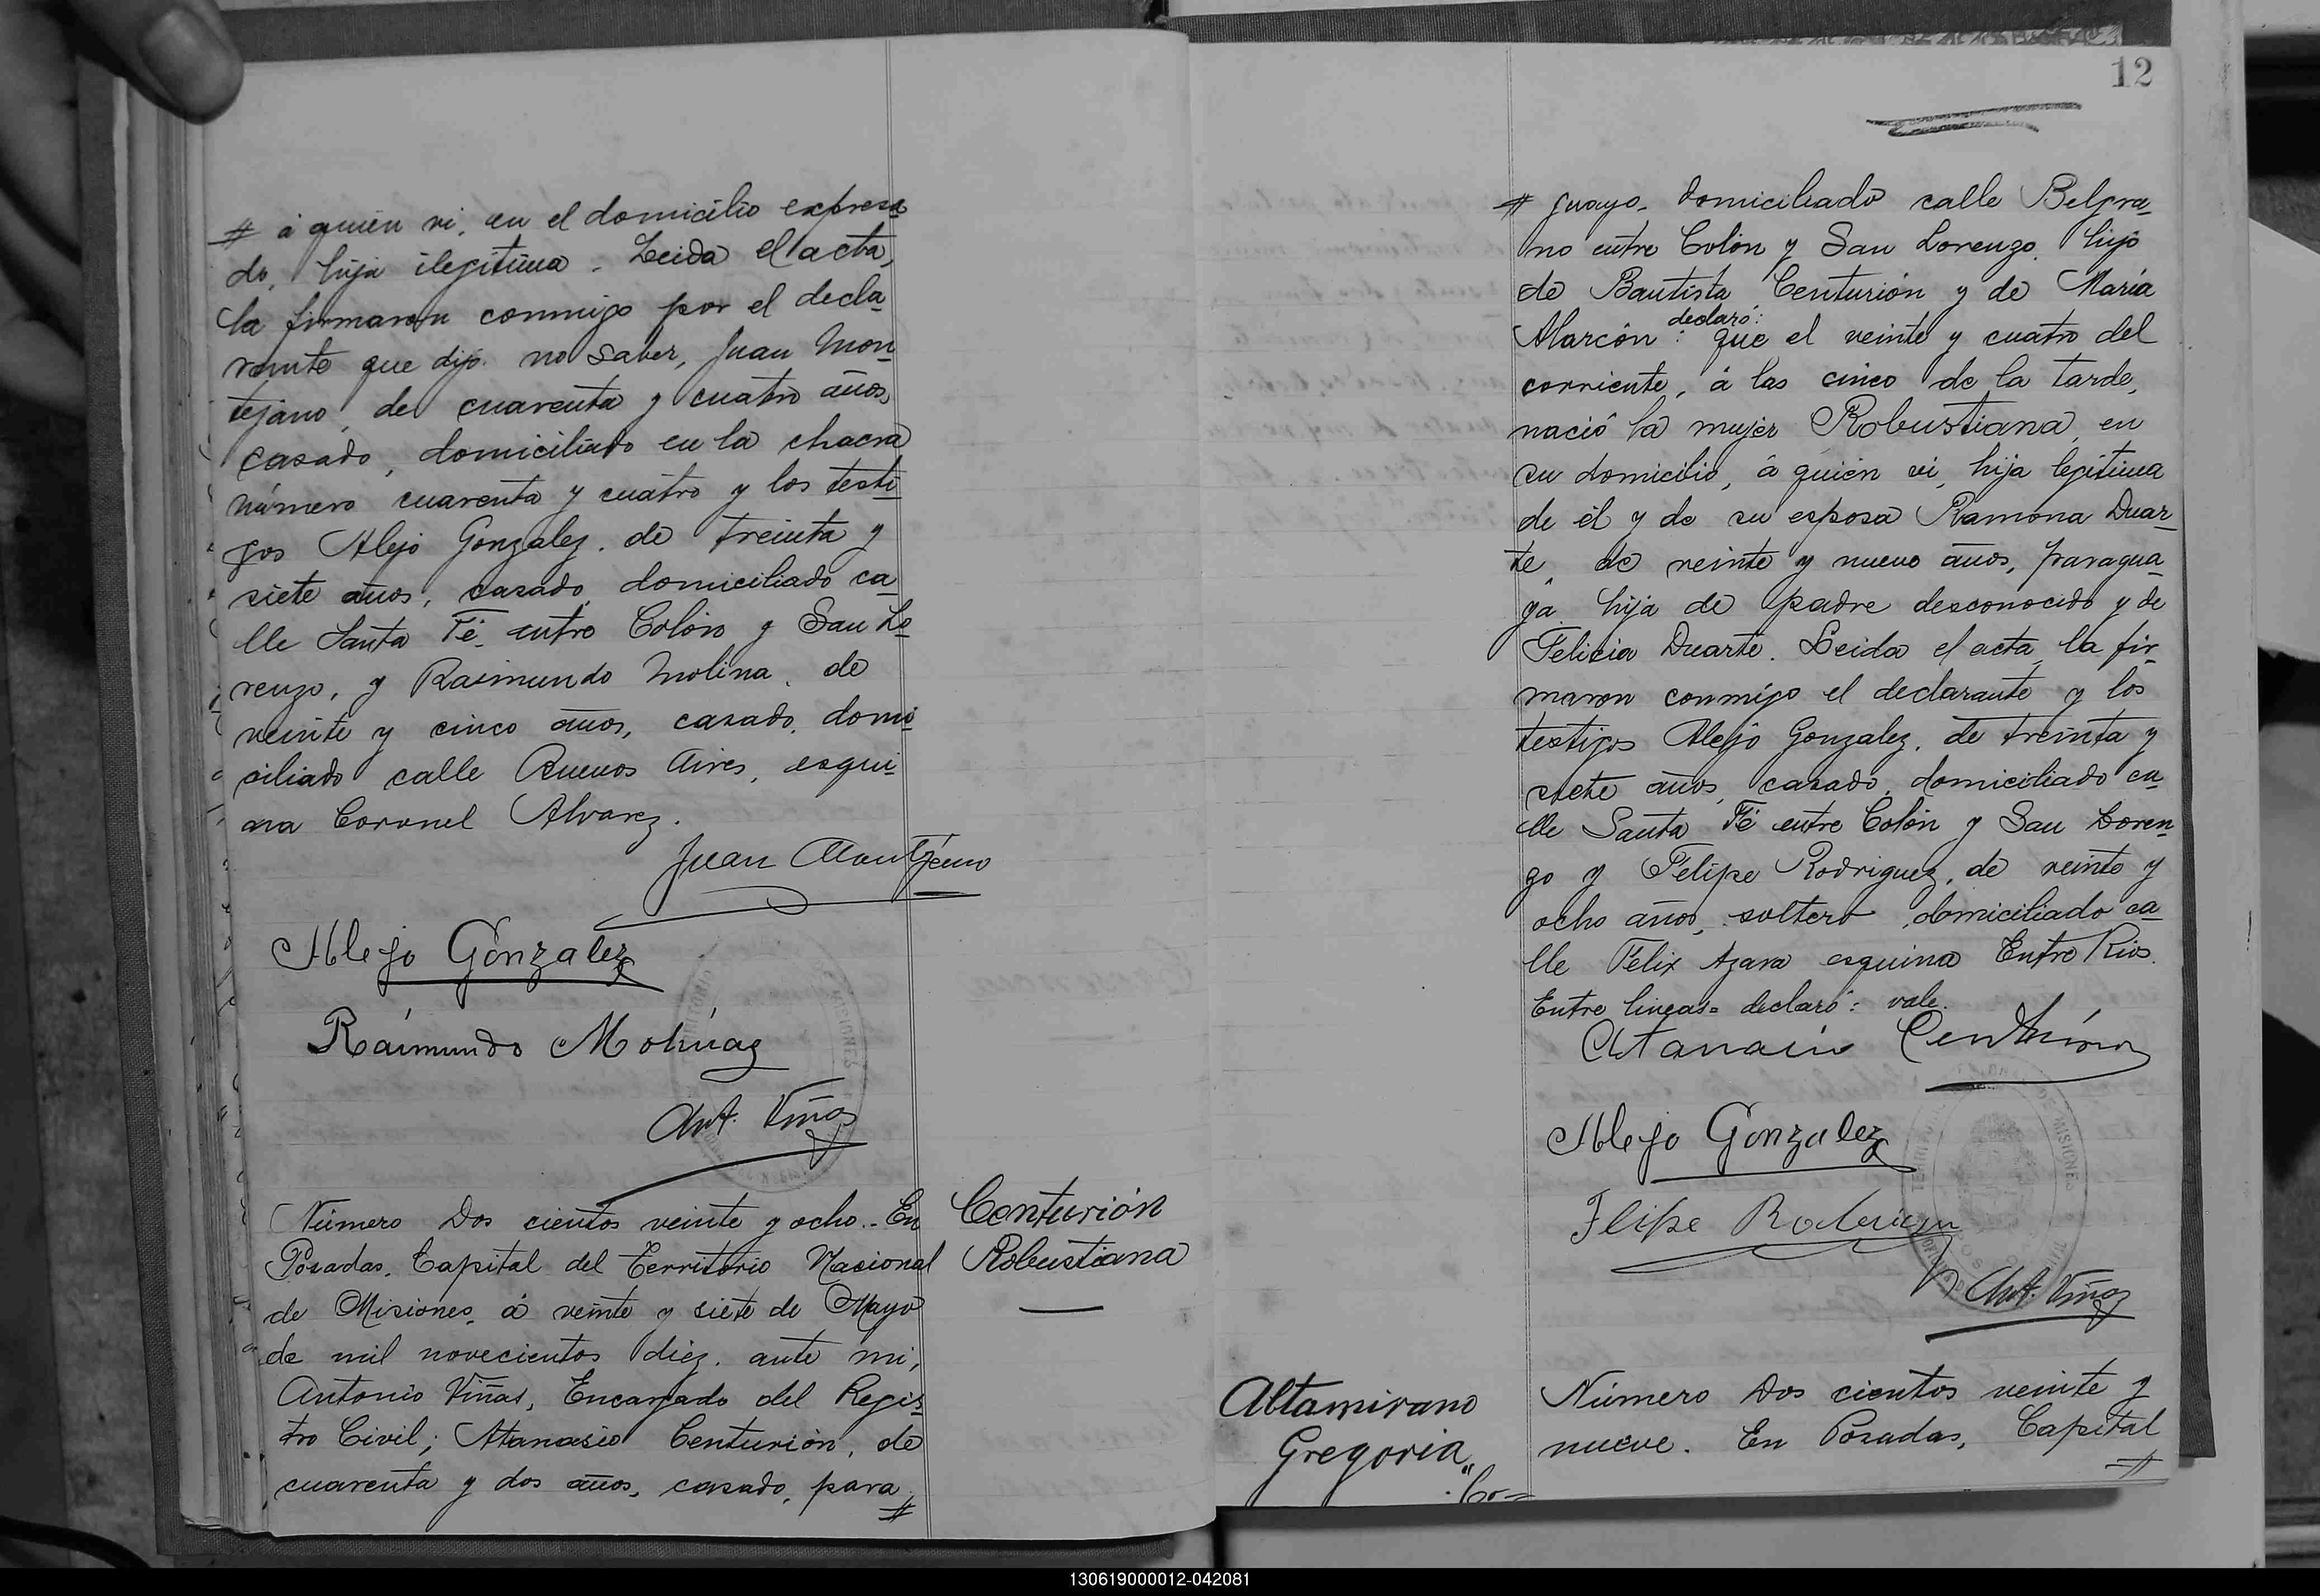 # á quién ví, en el domicilio expresa
do, hija ilegítima. Leida el acta,
la firmaron conmigo por el decla
rante que dijo no saber, Juan Mon
tejano, de cuarenta y cuatro años,
casado, domiciliado en la chacra
número cuarenta y cuatro y los testi
gos Alejo Gonzalez, de treinta y
siete años, casado, domiciliado ca
lle Santa Fé entre Colón y San Lo
renzo, y Raimundo Molina, de
veinte y cinco años, casado, domi
ciliado calle Buenos Aires, esqui
na Coronel Alvarez.
Juan
Alejo Gonzalez
Raimundo Molinas
Ant. Viñas
Número Dos cientos veinte y ocho.- En
Posadas, Capital del Territorio Nacional
de Misiones, á veinte y siete de Mayo
de mil novecientos diez, ante mi,
Antonio Viñas, Encargado del Regis
tro Civil; Atanasio Centurión, de
cuarenta y dos años, casado, para
#
Centurión
Robustiana
12
# guayo, domiciliado calle Belgra-
no entre Colón y San Lorenzo, hijo
de Bautista Centurión y de María
declaró:
Alarcón: que el veinte y cuatro del
corriente, á las cinco de la tarde,
nació la mujer Robustiana, en
su domicilio, á quién ví, hija legítima
de él y de su esposa Ramona Duar
te, de veinte y nueve años, paragua
ya, hija de padre desconocido y de
Felicia Duarte. Leida el acta, la fir
maron conmigo el declarante y los
testigos Alejo Gonzalez, de treinta y
siete años, casado, domiciliado ca
lle Santa Fé entre Colón y San Loren
zo y Felipe Rodriguez, de veinte y
ocho años, soltero, domiciliado ca
lle Felix Azara esquina Entre Rios.
Entre lineas= declaró: vale.
Atanasio Centurion
Alejo Gonzalez
Flipe
Ant. Viñas
MISIONES
Altamirano
Gregoria
Número Dos cientos veinte y
nueve. En Posadas, Capital
#
130619000012-042081